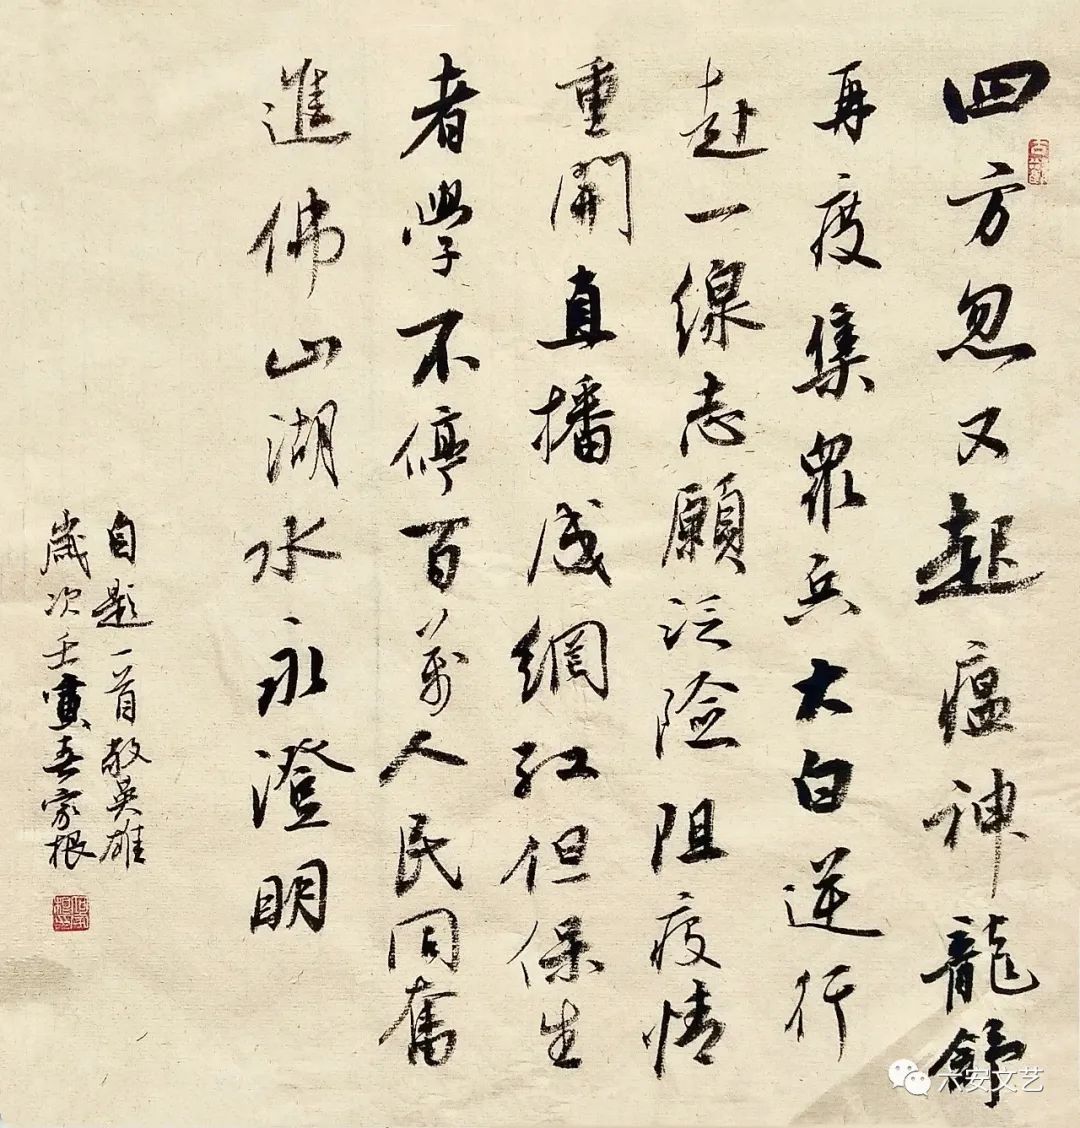 四方忽又起瘟神龍舒
再度集眾兵大白逆行
赴一線志願泛險阻疫情
重開直播成網紅但保生
者學不停百萬人民同奮
進佛山湖水永澄明
自題一首敬英雄
歲次壬寅春家根
六安文艺